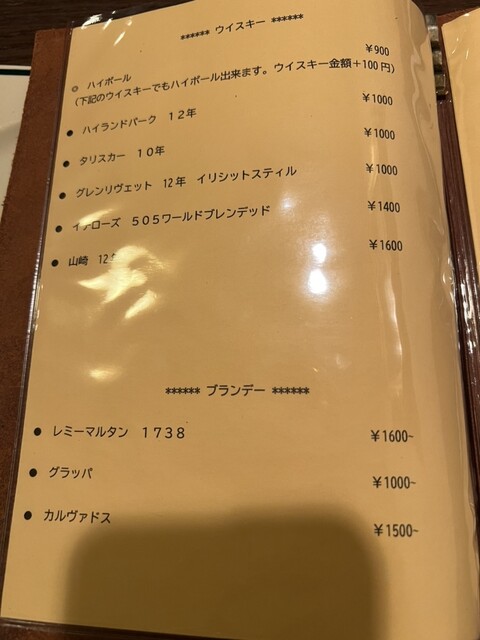 ****** ウイスキー ******
◎ ハイボール ￥900
(下記のウイスキーでもハイボール出来ます。ウイスキー金額＋100円)
● ハイランドパーク 12年 ￥1000
● タリスカー 10年 ￥1000
● グレンリヴェット 12年 イリシットスティル ￥1000
● イチローズ 505ワールドブレンデッド ￥1400
● 山崎 12年 ￥1600
****** ブランデー ******
● レミーマルタン 1738 ￥1600~
● グラッパ ￥1000~
● カルヴァドス ￥1500~